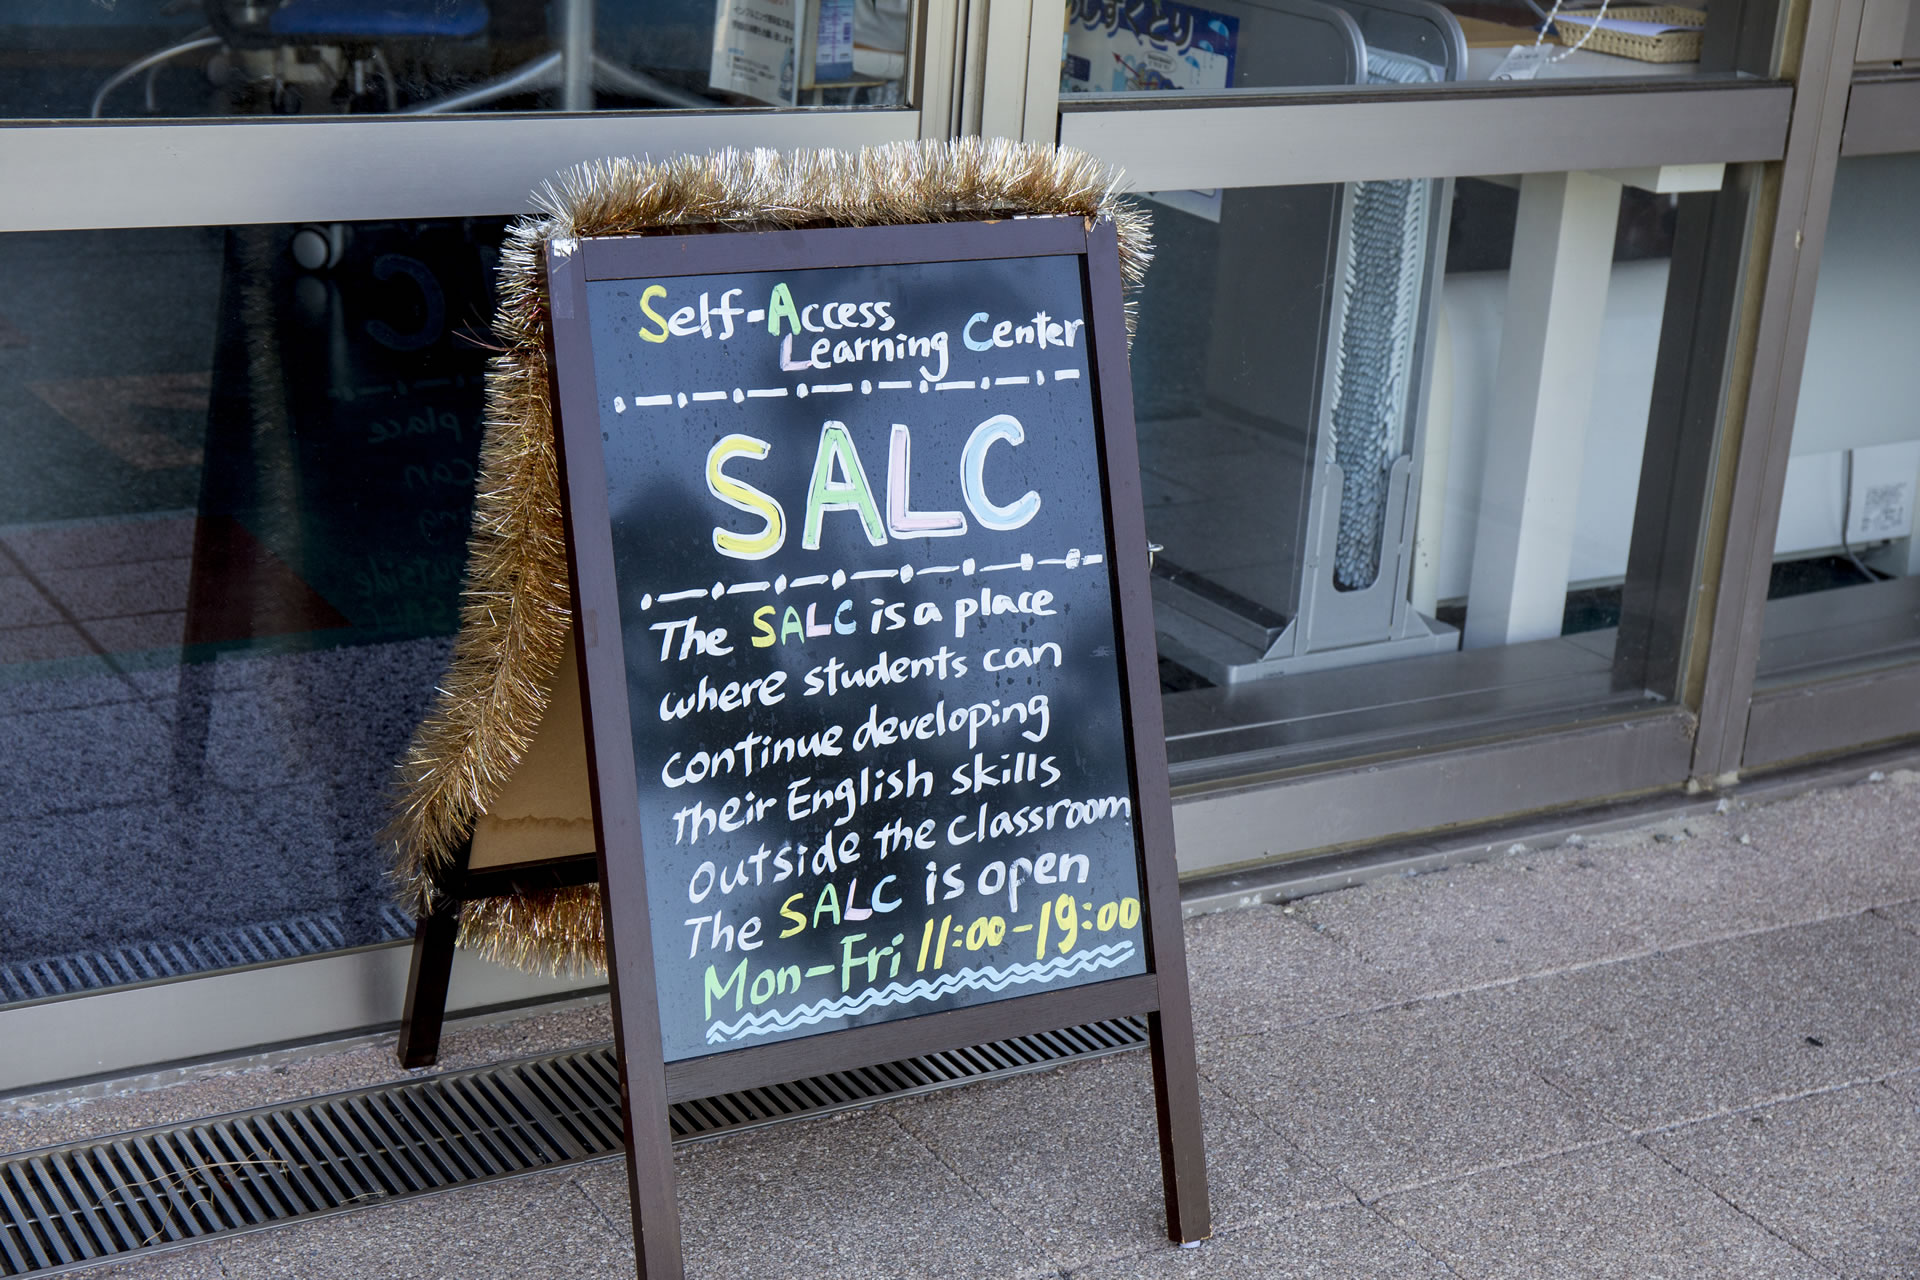 Self-Access
Learning Center
SALC
The SALC is a place
where students can
continue developing
their English skills
outside the classroom
The SALC is open
Mon-Fri 11:00-19:00